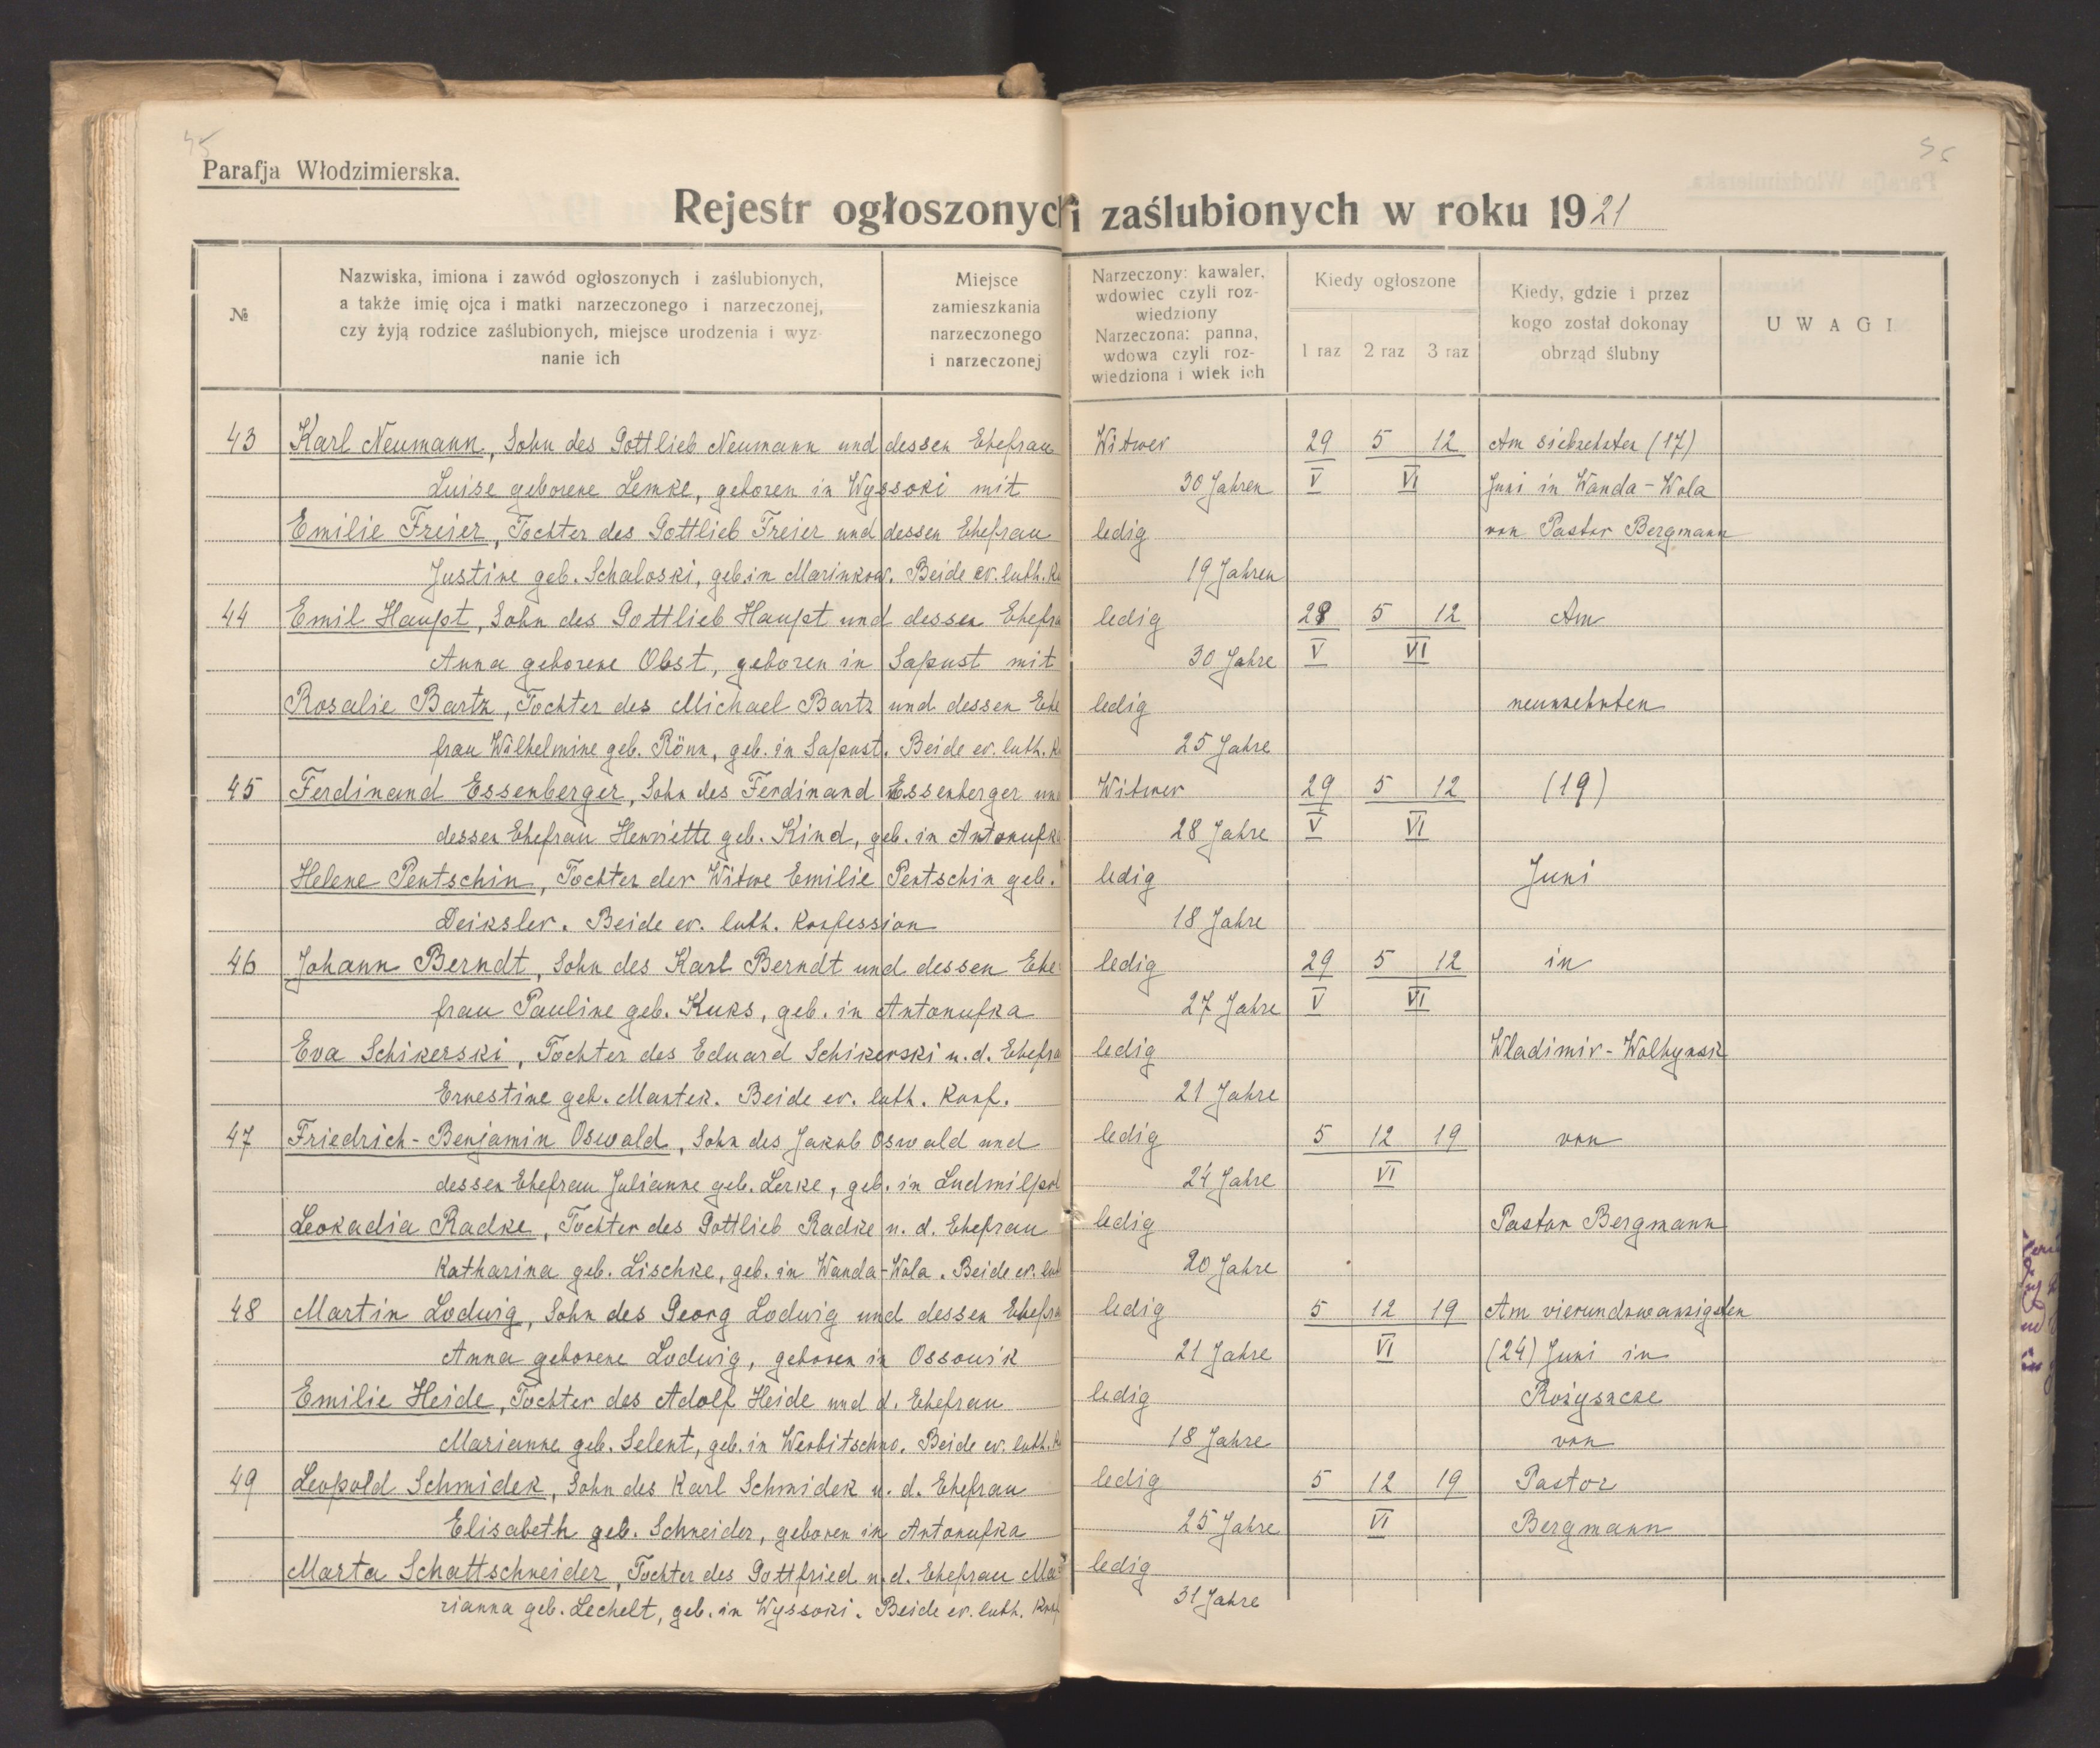 45
Parafja Włodzimierska.
Rejestr ogłoszonych i zaślubionych w roku 1921
№
Nazwiska, imiona i zawód ogłoszonych i zaślubionych,
a także imię ojca i matki narzeczonego i narzeczonej,
czy żyją rodzice zaślubionych, miejsce urodzenia i wyz-
nanie ich
Miejsce
zamieszkania
narzeczonego
i narzeczonej
Narzeczony: kawaler,
wdowiec czyli roz-
wiedziony
Narzeczona: panna,
wdowa czyli roz-
wiedziona i wiek ich
Kiedy ogłoszone
1 raz 2 raz 3 raz
Kiedy, gdzie i przez
kogo został dokonay
obrząd ślubny
UWAGI
43 Karl Neumann, Sohn des Gottlieb Neumann und dessen Ehefrau Witwer 29 5 12 Am siebzehnten (17)
Luise geborene Lemke, geboren in Wyssoki mit 30 Jahren V VI Juni in Wanda-Wola
Emilie Freier, Tochter des Gottlieb Freier und dessen Ehefrau ledig von Pastor Bergmann
Justine geb. Schaloski, geb. in Marinkow. Beide ev. luth. Ko 19 Jahren
44 Emil Haupt, Sohn des Gottlieb Haupt und dessen Ehefra ledig 28 5 12 Am
Anna geborene Obst, geboren in Sapust mit 30 Jahre V VI
Rosalie Bartz, Tochter des Michael Bartz und dessen Ehe ledig neunzehnten
frau Wilhelmine geb. Rönn, geb. in Sapust. Beide ev. luth. K 25 Jahre
45 Ferdinand Essenberger, Sohn des Ferdinand Essenberger und Witwer 29 5 12 (19)
dessen Ehefrau Henriette geb. Kind, geb. in Antonufka 28 Jahre V VI
Helene Pentschin, Tochter der Witwe Emilie Pentschin geb. ledig Juni
Deiksler. Beide ev. luth. Konfession 18 Jahre
46 Johann Berndt, Sohn des Karl Berndt und dessen Ehe- ledig 29 5 12 in
frau Pauline geb. Kuks, geb. in Antonufka 27 Jahre V VI
Eva Schikerski, Tochter des Eduard Schikerski u. d. Ehefra ledig Wladimir-Wolhynsk
Ernestine geb. Mantek. Beide ev. luth. Konf. 21 Jahre
47 Friedrich-Benjamin Oswald, Sohn des Jakob Oswald und ledig 5 12 19 von
dessen Ehefrau Julianne geb. Lerke, geb. in Ludmilpol 24 Jahre VI
Leokadia Radke, Tochter des Gottlieb Radke u. d. Ehefrau ledig Pastor Bergmann
Katharina geb. Lischke, geb. in Wanda-Wola. Beide ev. lut 20 Jahre
48 Martin Lodwig, Sohn des Georg Lodwig und dessen Ehefra ledig 5 12 19 Am vierundzwanzigsten
Anna geborene Ludwig, geboren in Ossowik 21 Jahre VI (24) Juni in
Emilie Heide, Tochter des Adolf Heide und d. Ehefrau ledig Rożyszcze
Marianne geb. Selent, geb. in Werbitschno. Beide ev. luth. K 18 Jahre von
49 Leopold Schmidek, Sohn des Karl Schmidek u. d. Ehefrau ledig 5 12 19 Pastor
Elisabeth geb. Schneider, geboren in Antonufka 25 Jahre VI Bergmann
Marta Schattschneider, Tochter des Gottfried u. d. Ehefrau Ma- ledig
rianna geb. Lechelt, geb. in Wyssoki. Beide ev. luth. Konf 31 Jahre